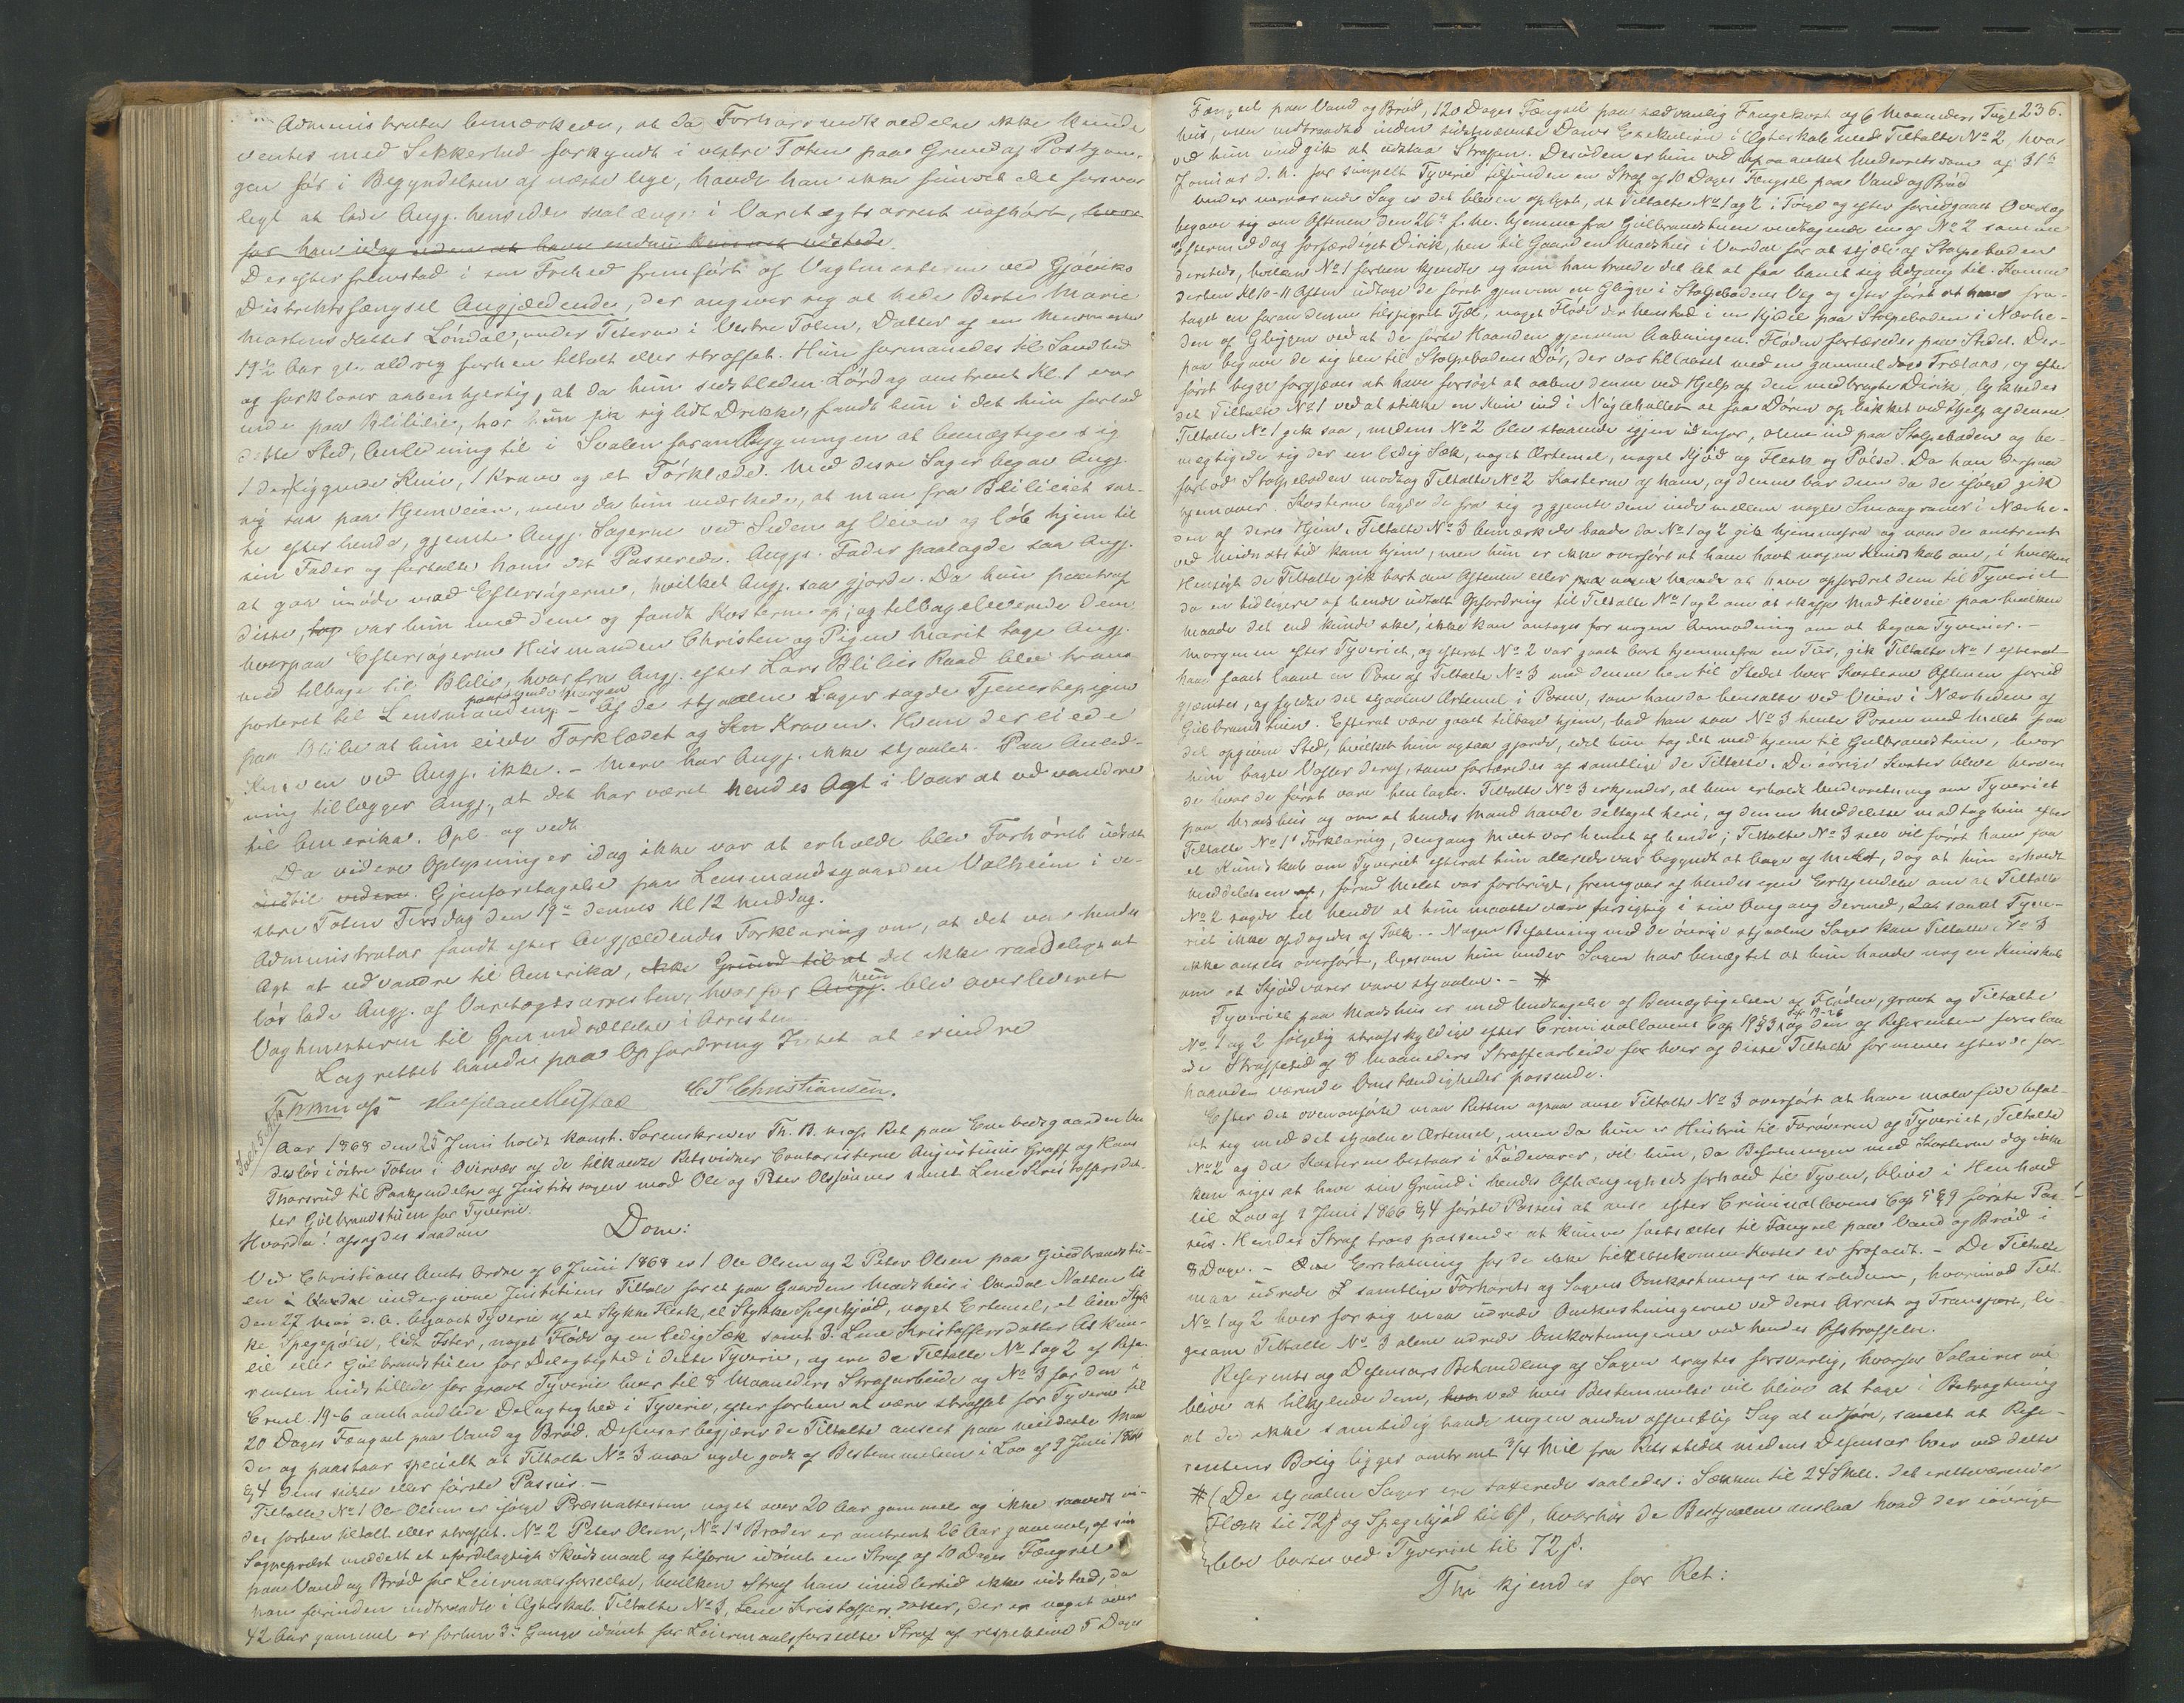 Administrator bemærkede, at da Forhørsmeddelelse ikke kunde
ventes med Sikkerhed forkyndt i vestre Toten paa Grund af Postgan-
gen før i Begyndelsen af næste Uge, havde han ikke fundet det forsvar-
ligt at lade Angj. hensidde saalænge i Varetægtsarrest uafhørt, hvor-
for han idag uden at have endnu kunnet udstede
Derefter fremstod i sin Frihed fremført af Vagtmesteren ved Gjøviks
Distriktsfængsel Angjældende, der angiver sig at hede Berte Marie
Martensdatter Løndal, under Teterud i Vestre Toten, Datter af en Huusmand
19½ Aar gl. aldrig forhen tiltalt eller straffet. Hun formanedes til Sandhed
og forklarer aabenhjertig, at da hun sidstleden Lørdag omtrent Kl. 1 var
inde paa Blilie, hvor hun fik sig lidt Drikke, fandt hun i det hun forlod
dette Sted, Anledning til i Svalen foran Bygningen at bemægtige sig
1 der liggende Kniv, 1 Krave og et Tørklæde. Med disse Sager begav Angj.
sig saa paa Hjemveien, men da hun mærkede, at man fra Blilieiet sat-
te efter hende, gjemte Angj. Sagerne ved Siden af Veien og løb hjem til
sin Fader og fortalte ham det Passerede. Angjs. Fader paalagde saa Angj.
at gaa imøde med Eftersøgerne, hvilket Angj. saa gjorde. Da hun fraf
disse, tog var hun med dem og fandt Kosterne op, og tilbageleverede dem
hvorpaa Eftersøgerne Huusmanden Christen og Pigen Marit toge Angj.
med tilbage til Blilie, hvorfra Angj. efter Lars Blilies Raad blev trans
porteret til Lensmanden paafølgende Morgen. - Af de stjaalne Sager sagde Tjenestepigen
paa Blilie at hun eiede Tørklædet og Kn Kraven. Hvem der eiede
Kniven ved Angj. ikke. - Mere har Angj. ikke stjaalet. Paa Anled-
ning tillægger Angj., at det har været hendes Agt i Vaar at udvandre
til Amerika. Opl. og vedt.
Da videre Oplysninger idag ikke var at erholde blev Forhøret udsat
indtil videre Gjenforetagelse paa Lensmandsgaarden Valheim i ve-
stre Toten Tirsdag den 19de dennes Kl 12 Middag.
Administrator fandt efter Angjældendes Forklaring om, at det var hendes
Agt at udvandre til Amerika, ikke Grund til at det ikke raadeligt at
løslade Angj. af Varetægtsarresten, hvorfor Angj. hun blev overleveret
Vagtmesteren til Gjenindsættelse i Arresten
Lagrettet havde paa Opfordring Intet at erindre
Th Moss Halfdan Mustad C. F. Christiansen.
Aar 1868 den 25 Juni holdt konst. Sorenskriver Th. B. Moss Ret paa Embedsgaarden
i østre Toten i Overvær af de tilkaldte Retsvidner Contoristerne Augustinus Graff og Hans
Thorsrud til Paakjendelse af Justitssagen mod Ole og Peter Olssønner samt Lene Kristoffersdat-
ter Gulbrandstuen for Tyverie.
Hvorda! afsagdes saadan
Dom:
Ved Christians Amts Ordre af 6 Juni 1868 er 1 Ole Olsen og 2 Peter Olsen paa Gulbrandstu-
en i Vardal undergivne Justitiens Tiltale for et paa Gaarden Madshus i Vardal Natten til
den 27 Mai d. A. begaaet Tyverie af et Stykke Flesk, et Stykke Spegekjød, noget Ertemel, et lidet Styk-
ke Spegepølse, lidt Ister, noget Fløde og en ledig Sæk samt 3. Lene Kristoffersdatter Askim-
eie eller Gulbrandstuen for Delagtighed i dette Tyverie, og ere de Tiltalte No 1 og 2 af Refe-
renten indstillede for grovt Tyverie hver til 8 Maaneders Strafarbeide og No 3 for den i
Crml. 19-6 omhandlede Delagtighed i Tyverie, efter forhen at være straffet for Tyverie til
20 Dages Fængsel paa Vand og Brød. Defensor begjærer de Tiltalte anseet paa mildeste Maa-
de og paastaar specielt at Tiltalte No 3 maa nyde godt af Bestemmelsen i Lov af 3 Juni 1866
§4 dens sidste eller første Passus. -
Tiltalte No 1 Ole Olsen er ifølge Præsteattesten noget over 20 Aar gammel og ikke saavidt vi-
des forhen tiltalt eller straffet. No 2 Peter Olsen, No 1s Broder er omtrent 26 Aar gammel, af sin
Sogneprest meddelt et ufordelagtigt Skudsmaal og tilforn idømt en Straf af 10 Dages Fængsel
paa Vand og Brød for Leiermaalsforseelse, hvilken Straf han imidlertid ikke udstod, da
han forinden indtraadte i Ægteskab. Tiltalte No 3, Lene Kristoffersdatter, der er noget over
42 Aar gammel er forhen 3de Gange idømt for Leiermaalsforseelse Straf af respektive 5 Dages
236.
Fængsel paa Vand og Brød, 120 Dages Fængsel paa sædvanlig Fangekost og 6 Maaneders Tugt
huus, men indtraadte inden sidstnævnte Doms Exekution i Ægteskab med Tiltalte No 2, hvor
ved hun undgik at udstaa Straffen. Desuden er hun ved upaaanket Underretsdom af 31te
Januar d. A. for simpelt Tyverie tilfunden en Straf af 10 Dages Fængsel paa Vand og Brød
Under nærværende Sag er det bleven oplyst, at Tiltalte No 1 og 2 i Følge og efter forudgaaet Overlæg
begave sig om Aftenen den 26de f. M. hjemme fra Gulbrandstuen medtagende en af No 2 samme
Eftermiddag forfærdiget Dirik, hen til Gaarden Madshus i Vardal for at stjæle af Stolpeboden
dersteds, hvilken No 1 forhen kjendte og som han troede det let at faa banet sig Adgang til. Komne
derhen Kl 10-11 Aften udtoge de først gjennem en Glugge i Stolpebodens Væg og efter først at have fra-
taget en foran denne tilspigret Fjæl, noget Fløde der henstod i en Kjedel paa Stolpeboden i Nærhe-
den af Gluggen ved at de førte Haanden gjennem Aabningen. Fløden fortæredes paa Stedet. Der-
paa begave de sig hen til Stolpebodens Dør, der var tillaaset med en gammeldags Trælaas, og efter
først begge forgjæves at have forsøgt at aabne denne ved Hjelp af den medbragte Dirik, lykkedes
det Tiltalte No 1 ved at stikke en Kniv ind i Nøglehullet at faa Døren oplukket ved Hjelp af denne.
Tiltalte No 1 gik saa, medens No 2 blev staaende igjen udenfor, alene ind paa Stolpeboden og be-
mægtigede sig der en ledig Sæk, noget Ærtemel, noget Kjød og Flesk og Pølse. Da han derpaa
forlod Stolpeboden modtog Tiltalte No 2 Kosterne af ham, og denne bar dem da de ifølge gik
hjemover. Kosterne lagde de fra sig og gjemte dem inde mellem nogle Smaagraner i Nærhe-
den af deres Hjem. Tiltalte No 3 bemærkede baade da No 1 og 2 gik hjemmefra og naar de omtrent
ved Midnatstid kom hjem, men hun er ikke overført at have havt nogen Kundskab om, i hvilken
Hensigt de Tiltalte gik bort om Aftenen eller paa nogen Maade at have opfordret dem til Tyveriet
da en tidligere af hende udtalt Opfordring til Tiltalte No 1 og 2 om at skaffe Mad tilveie paa hvilken
Maade det end kunde ske, ikke kan antages for nogen Anmodning om at begaa Tyverier. -
Morgenen efter Tyveriet, og efterat No 2 var gaaet bort hjemmefra en Tur, gik Tiltalte No 1 efterat
have faaet laant en Pose af Tiltalte No 3 med denne hen til Stedet hvor Kosterne Aftenen forud
gjemtes, og fyldte det stjaalne Ærtemel i Posen, som han da hensatte ved Veien i Nærheden af
Gulbrandstuen. Efterat være gaaet tilbage hjem, bad han saa No 3 hente Posen med Melet paa
det opgivne Sted, hvilket hun ogsaa gjorde, idet hun tog det med hjem til Gulbrandstuen, hvor
hun bagte Vafler deraf, som fortæredes af samtlige de Tiltalte. De øvrige Koster bleve beroen
de hvor de først vare henlagte. Tiltalte No 3 erkjender, at hun erholdt Underretning om Tyveriet
paa Madshus og om at hendes Mand havde deltaget heri, og denne Meddelelse modtog hun efter
Tiltalte No 1s Forklaring, dengang Melet var hentet af hende; Tiltalte No 3 selv vil først have faa
et Kundskab om Tyveriet efterat hun allerede var begyndt at bage af Melet, dog at hun erholdt
Meddelelsen af, forud Melet var forbrugt, fremgaar af hendes egen Erkjendelse om at Tiltalte
No 2 sagde til hende at hun maatte være forsigtig i sin Omgang dermed, saaat Tyve-
riet ikke opdagedes af Folk. - Nogen Befatning med de øvrige stjaalne Sager kan Tiltalte No 3
ikke ansees overført, ligesom hun under Sagen har benegtet at hun havde nogen Kundskab
om at Kjødvarer vare stjaalne. - #
Tyveriet paa Madshus er med Undtagelse af Bemægtigelsen af Fløden, grovt og Tiltalte
No 1 og 2 følgelig strafskyldige efter Criminallovens Cap 19 §3 cfr 19-26 og den af Referenten foreslaa
ede Straffetid af 8 Maaneders Straffearbeide for hver af disse Tiltalte formenes efter de for-
haanden værende Omstændigheder passende.
Efter det ovenanførte maa Retten ogsaa anse Tiltalte No 3 overført at have mala fide befat-
tet sig med det stjaalne Ærtemel, men da hun er Hustru til Forøveren af Tyveriet, Tiltalte
No 2 og da Kosterne bestaar i Fødevarer, vil hun, da Befatningen med Kosterne dog ikke
kan siges at have sin Grund i hendes Afhængighedsforhold til Tyven, blive i Henhold
til Lov af 3 Juni 1866 §4 første Passus at anse efter Criminallovens Cap 5 §9 første Pas-
sus. Hendes Straf troes passende at kunne fastsættes til Fængsel paa Vand og Brød i
8 Dage. - Om Erstatning for de ikke tilstedekomne Koster er frafaldt. - De Tiltalte
maa udrede samtlige Forhørets og Sagens Omkostninger in solidum, hvorimod Tilt.
No 1 og 2 hver for sig maa udrede Omkostningerne ved deres Arrest og Transport, li-
gesom Tiltalte No 3 alene udrede Omkostningerne ved hendes Afstraffelse.
Referents og Defensors Behandling af Sagen eragtes forsvarlig, hvorfor Salairer vil
blive at tilkjende dem, hvo ved hvis Bestemmelse vil blive at tage i Betragtning
at de ikke samtidig havde nogen anden offentlig Sag at udføre, samt at Refe-
rentens Bolig ligger omtrent 3/4 Mil fra Retsstedet medens Defensor boer ved dette
# (De stjaalne Sager ere taxerede saaledes: Sækken til 24 Skill. det tilværende
Flesk til 72 ß og Spegekjød til 6 ß, hvorhos de Bestjaalne anslaa hvad der iøvrigt
blev borte ved Tyveriet til 72 ß.
Thi kjendes for Ret: